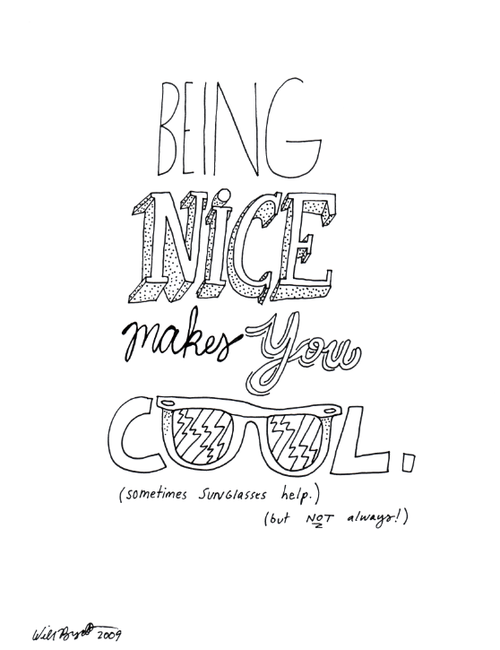 BEING
NiCE
makes You
COOL.
(sometimes SUNGLASSES help.)
(but NOT always!)
2009